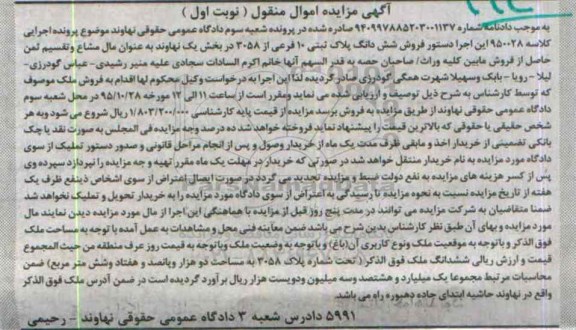 آگهی مزایده اموال منقول ( نوبت اول )
به موجب دادنامه شماره ۹۴۰۹۹۷۸۸۵۲۰۳۰۰۱۱۳۷ صادره شده در پرونده شعبه سوم دادگاه عمومی حقوقی نهاوند موضوع پرونده اجرایی
کلاسه ۹۵۰۰۲۸ این اجرا دستور فروش شش دانگ پلاک ثبتی ۱۰ فرعی از ۳۰۵۸ در بخش یک نهاوند به عنوان مال مشاع و تقسیم ثمن
حاصل از فروش مابین کلیه وراث/ صاحبان حصه به قدر السهم آنها خانم اکرم السادات سجادی علیه منیر رشیدی – عباس گودرزی-
لیلا – رویا – بابک وسهیلا شهرت همگی گودرزی صادر گردیده لذا این اجرا به درخواست وکیل محکوم لها اقدام به فروش ملک موصوف
که توسط کارشناس به شرح ذیل توصیف و ارزیابی شده می نماید ومقرر است از ساعت ۱۱ الی ۱۲ مورخه ۹۵/۱۰/۲۸ در محل شعبه سوم
دادگاه عمومی حقوقی نهاوند از طریق مزایده به فروش برسد مزایده از قیمت پایه کارشناسی ۱/۸۰۳/۲۰۰/۰۰۰ ریال شروع می شود وبه هر
شخص حقیقی یا حقوقی که بالاترین قیمت را پیشنهاد نماید فروخته خواهد شد ده درصد وجه مزایده فی المجلس به صورت نقد یا چک
بانکی تضمینی از خریدار اخذ و مابقی ظرف مدت یک ماه از خریدار وصول و پس از انجام مراحل قانونی و صدور دستور تملیک از سوی
دادگاه مورد مزایده به نام خریدار منتقل خواهد شد در صورتی که خریدار در مهلت یک ماه مقرر تهیه و جه مزایده را نپردازد سپرده وی
پس از کسر هزینه های مزایده به نفع دولت ضبط و مزایده تجدید می گردد در صورت ایصال اعتراض از سوی اشخاص ذینفع ظرف یک
هفته از تاریخ مزایده نسبت به نحوه مزایده تا رسیدگی به اعتراض از سوی دادگاه مورد مزایده را به خریدار تحویل و تملیک نخواهد شد
ضمنا متقاضیان به شرکت مزایده می توانند در مدت پنج روز قبل از مزایده با هماهنگی این اجرا از مال مورد مزایده دیدن نمایند مال
مورد مزایده و بهای آن طبق نظر کارشناس بدین شرح می باشد ضمن معاینه فنی محل و مشاهدات به عمل آمده با توجه به مساحت ملک
فوق الذکر و باتوجه به موقعیت ملک ونوع کاربری آن(باغ) و باتوجه به وضعیت ملک وباتوجه به قیمت روز عرف منطقه من حیث المجموع
قیمت و ارزش ریالی ششدانگ ملک فوق الذکر( تحت شماره پلاک ۳۰۵۸ به مساحت دو هزار وپانصد و هفتاد وشش متر مربع) ضمن
محاسبات مرتبط مجموعا یک میلیارد و هشتصد وسه میلیون ودویست هزار ریال برآورد گردیده است در ضمن آدرس ملک فوق الذکر
واقع در نهاوند حاشیه ابتدای جاده دهبوره راه می باشد.
۵۹۹۱ دادرس شعبه ۳ دادگاه عمومی حقوقی نهاوند – رحیمی